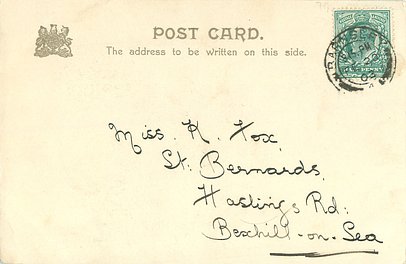 POST CARD.
The address to be written on this side.
Miss. K. Fox,
St. Bernards,
Hastings Rd:
Bexhill-on-Sea